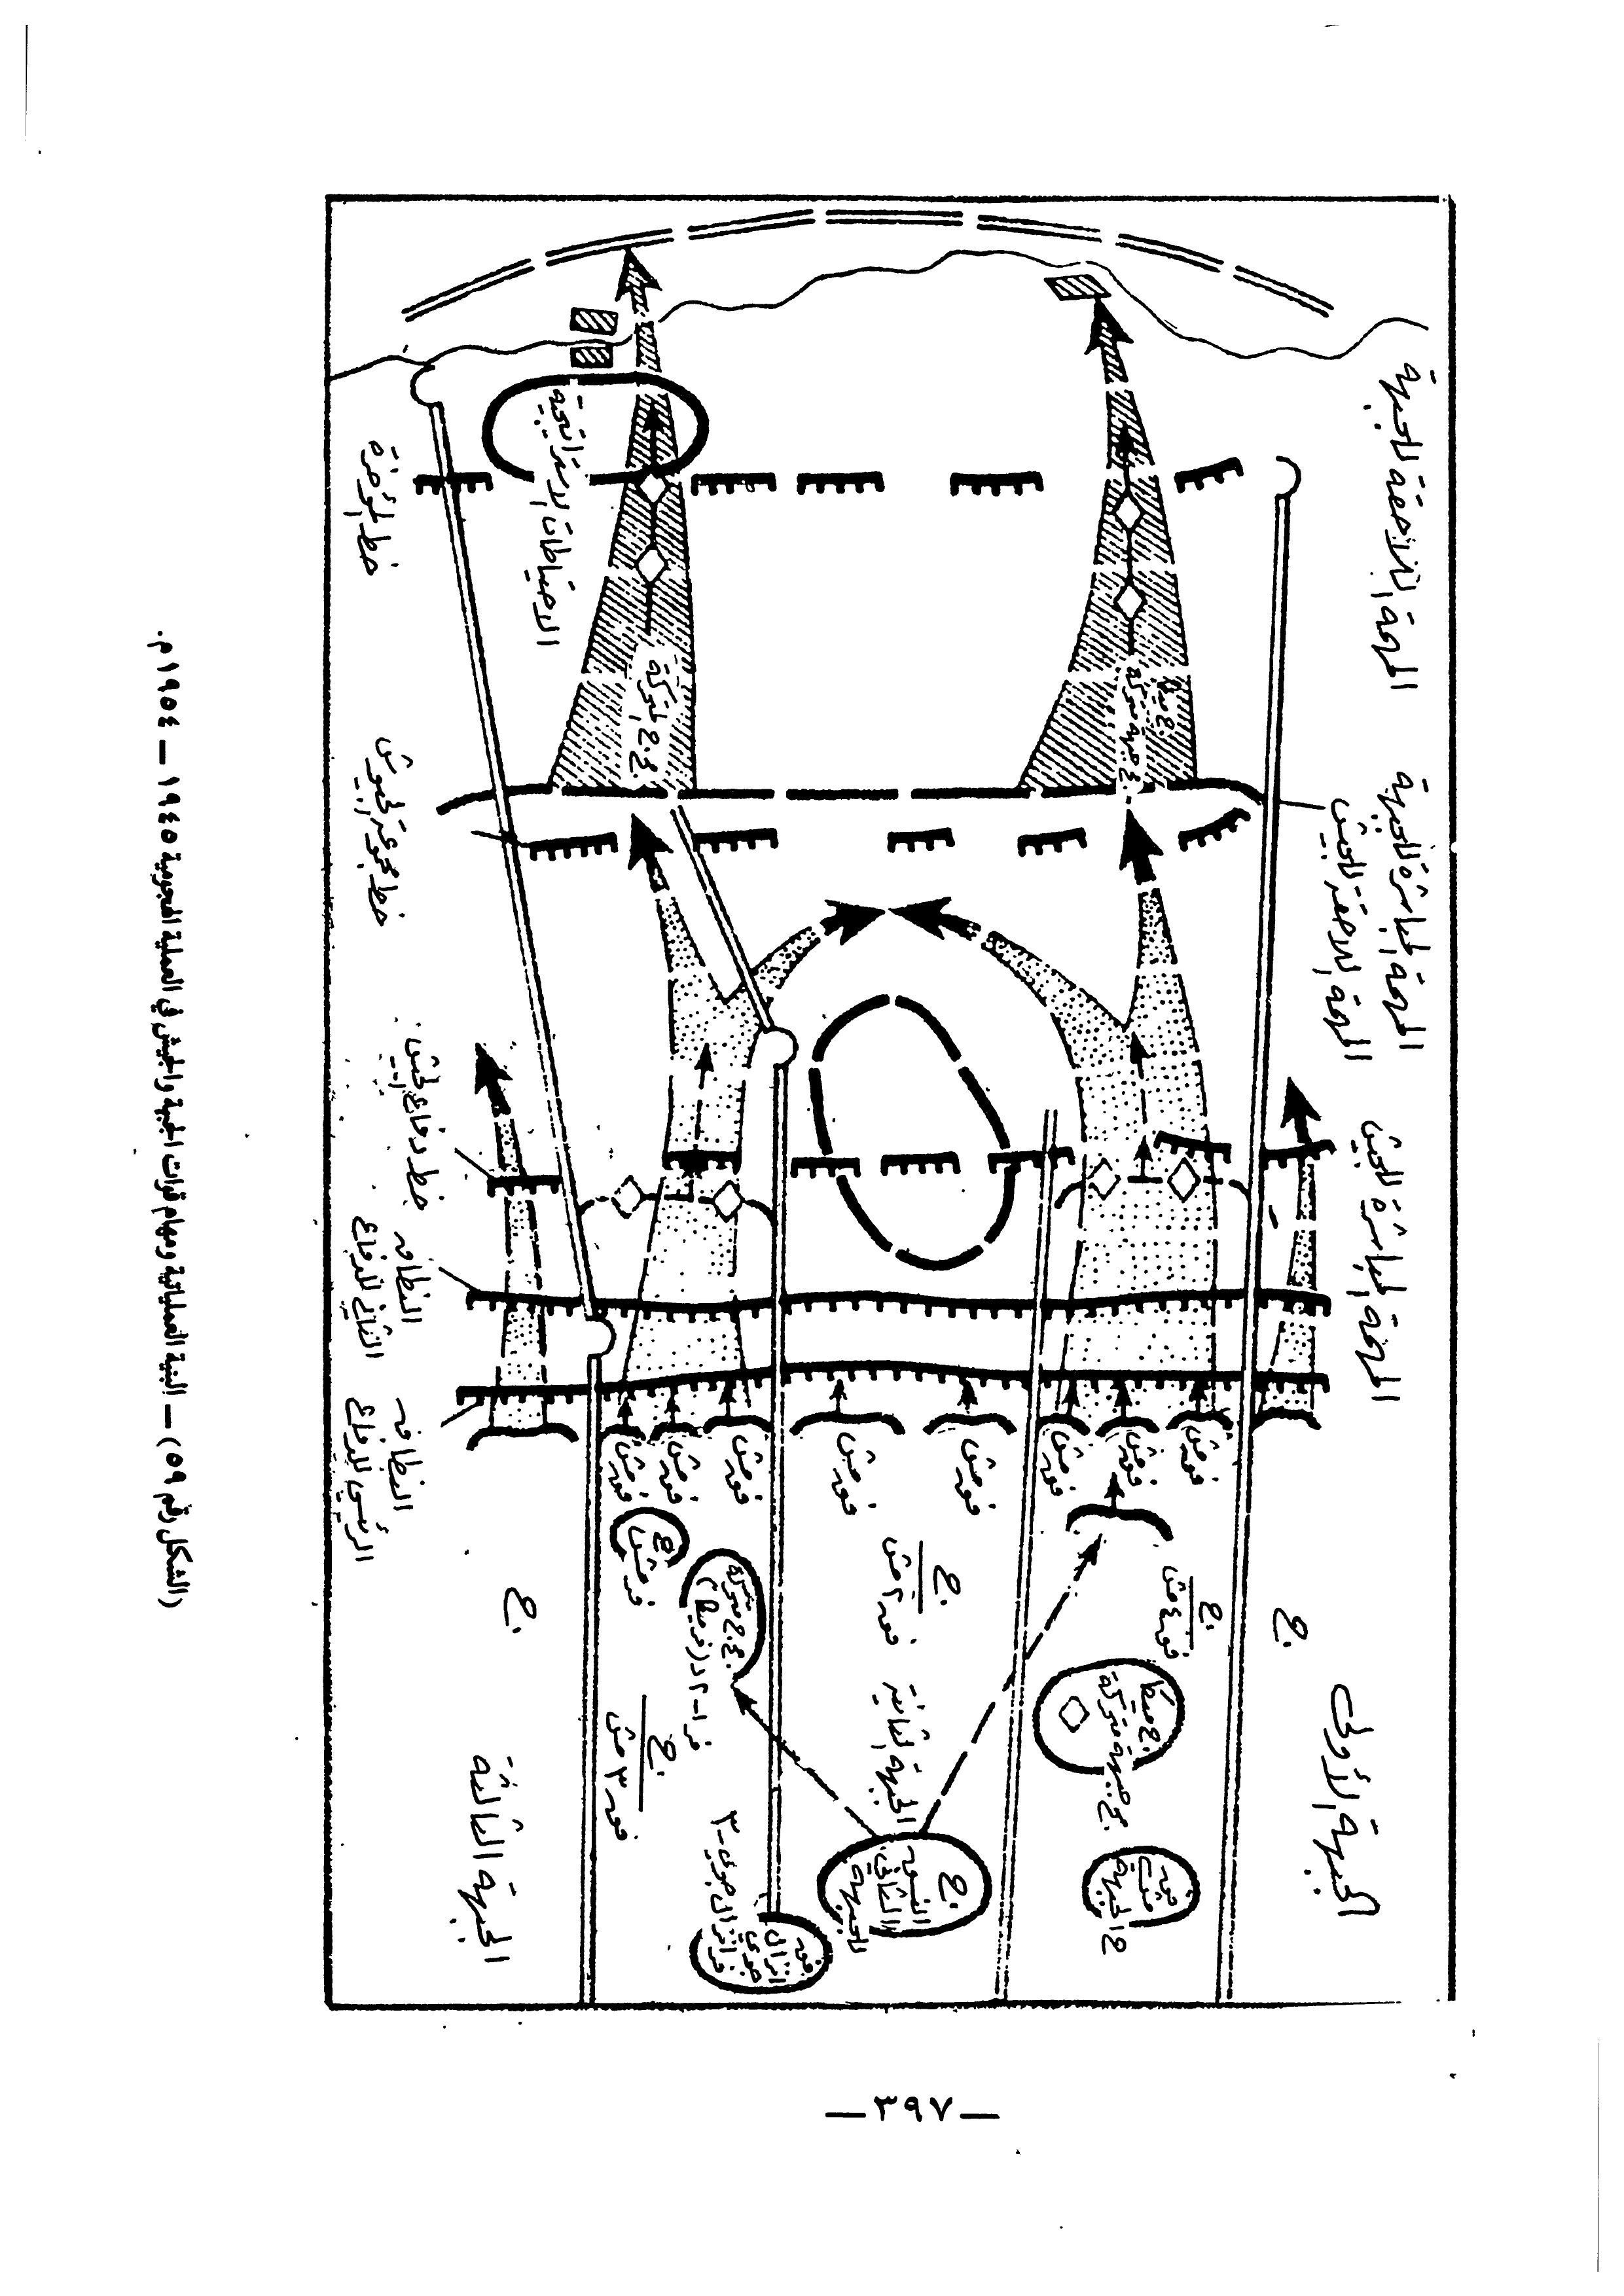 المهمة اللاحقة للجبهة
المهمة المباشرة للجبهة
المهمة اللاحقة للجيش
المهمة المباشرة للجيش
الجبهة الأولى
ج
ج
فق ٤ مش
الجبهة الثانية
ج
فق ٢ مش
ج
النسق
الثاني
للجبهة
فق مش
فق مش
فق مش
فق مش
فق مش
فق مش
فق مش
فق مش
ج
فق ٣ مش
ج
الجبهة الثالثة
الاحتياطات الاستراتيجية
خط المؤخرة
خط مجموعة الجيوش
خط دفاع الجيش
النطاق
الثاني للدفاع
النطاق
الرئيسي للدفاع
(الشكل رقم ٥٩) — البنية العملياتية ومهام قوات الجبهة والجيش في العملية الهجومية ١٩٤٥ — ١٩٥٤م.
— ٣٩٧ —